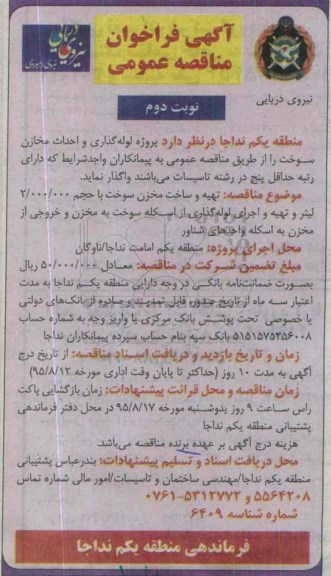 آگهی فراخوان
مناقصه عمومی
نیروی دریایی
نوبت دوم
منطقه یکم نداجا درنظر دارد پروژه لوله‌گذاری و احداث مخازن
سوخت را از طریق مناقصه عمومی به پیمانکاران واجدشرایط که دارای
رتبه حداقل پنج در رشته تاسیسات می‌باشند واگذار نماید.
موضوع مناقصه: تهیه و ساخت مخزن سوخت با حجم ۲/۰۰۰/۰۰۰
لیتر و تهیه و اجرای لوله‌گذاری از اسکله سوخت به مخزن و خروجی از
مخزن به اسکله واحدهای شناور
محل اجرای پروژه: منطقه یکم امامت نداجا/ناوگان
مبلغ تضمین شرکت در مناقصه: معادل ۵۰/۰۰۰/۰۰۰ ریال
بصورت ضمانتنامه بانکی در وجه دارایی منطقه یکم نداجا به مدت
اعتبار سه ماه از تاریخ صدور، قابل تمدید و صادره از بانک‌های دولتی
یا خصوصی تحت پوشش بانک مرکزی یا واریز وجه به شماره حساب
۵۱۵۱۵۷۵۴۵۶۰۰۸ بانک سپه بنام حساب سپرده پیمانکاران نداجا
زمان و تاریخ بازدید و دریافت اسناد مناقصه: از تاریخ درج
آگهی به مدت ۱۰ روز (حداکثر تا پایان وقت اداری مورخه ۹۵/۸/۱۲)
زمان مناقصه و محل قرائت پیشنهادات: زمان بازگشایی پاکت
راس ساعت ۹ روز یدوشنبه مورخه ۹۵/۸/۱۷ در محل دفتر فرماندهی
پشتیبانی منطقه یکم نداجا
هزینه درج آگهی بر عهده برنده مناقصه می‌باشد.
محل دریافت اسناد و تسلیم پیشنهادات: بندرعباس پشتیبانی
منطقه یکم نداجا/مهندسی ساختمان و تاسیسات/امور مالی شماره تماس
۵۵۶۴۲۰۸ و ۵۳۱۲۷۷۲-۰۷۶۱
شماره شناسه ۶۴۰۹
فرماندهی منطقه یکم نداجا